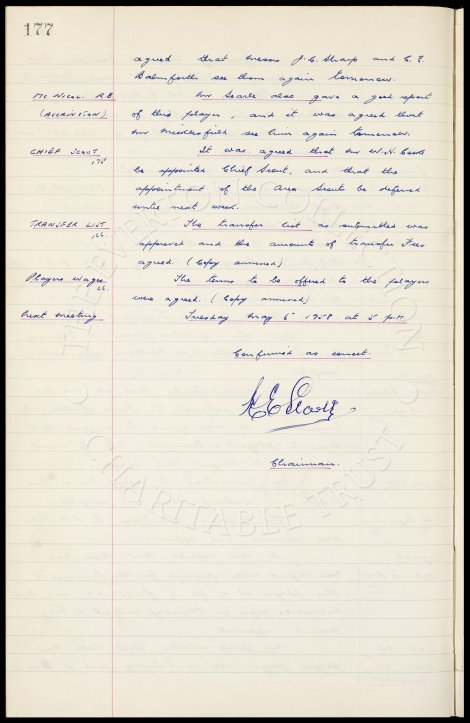 177
agreed that Messrs J.C. Sharp and C.E.
Balmforth see them again tomorrow.
McNICOL. R.B. Mr Searle also gave a good report
(ACCRINGTON) of this player, and it was agreed that
Mr see him again tomorrow.
CHIEF SCOUT It was agreed that Mr W.H. Cooke
be appointed Chief Scout, and that the
appointment of the Area Scouts be deferred
until next week.
TRANSFER LIST The transfer list as submitted was
approved and the amounts of transfer fees
agreed (Copy annexed)
Players Wages The terms to be offered to the players
were agreed. (Copy annexed)
Next meeting Tuesday May 6 1958 at 5 p.m.
Confirmed as correct.
Chairman.
THE EVERTON COLLECTION
CHARITABLE TRUST